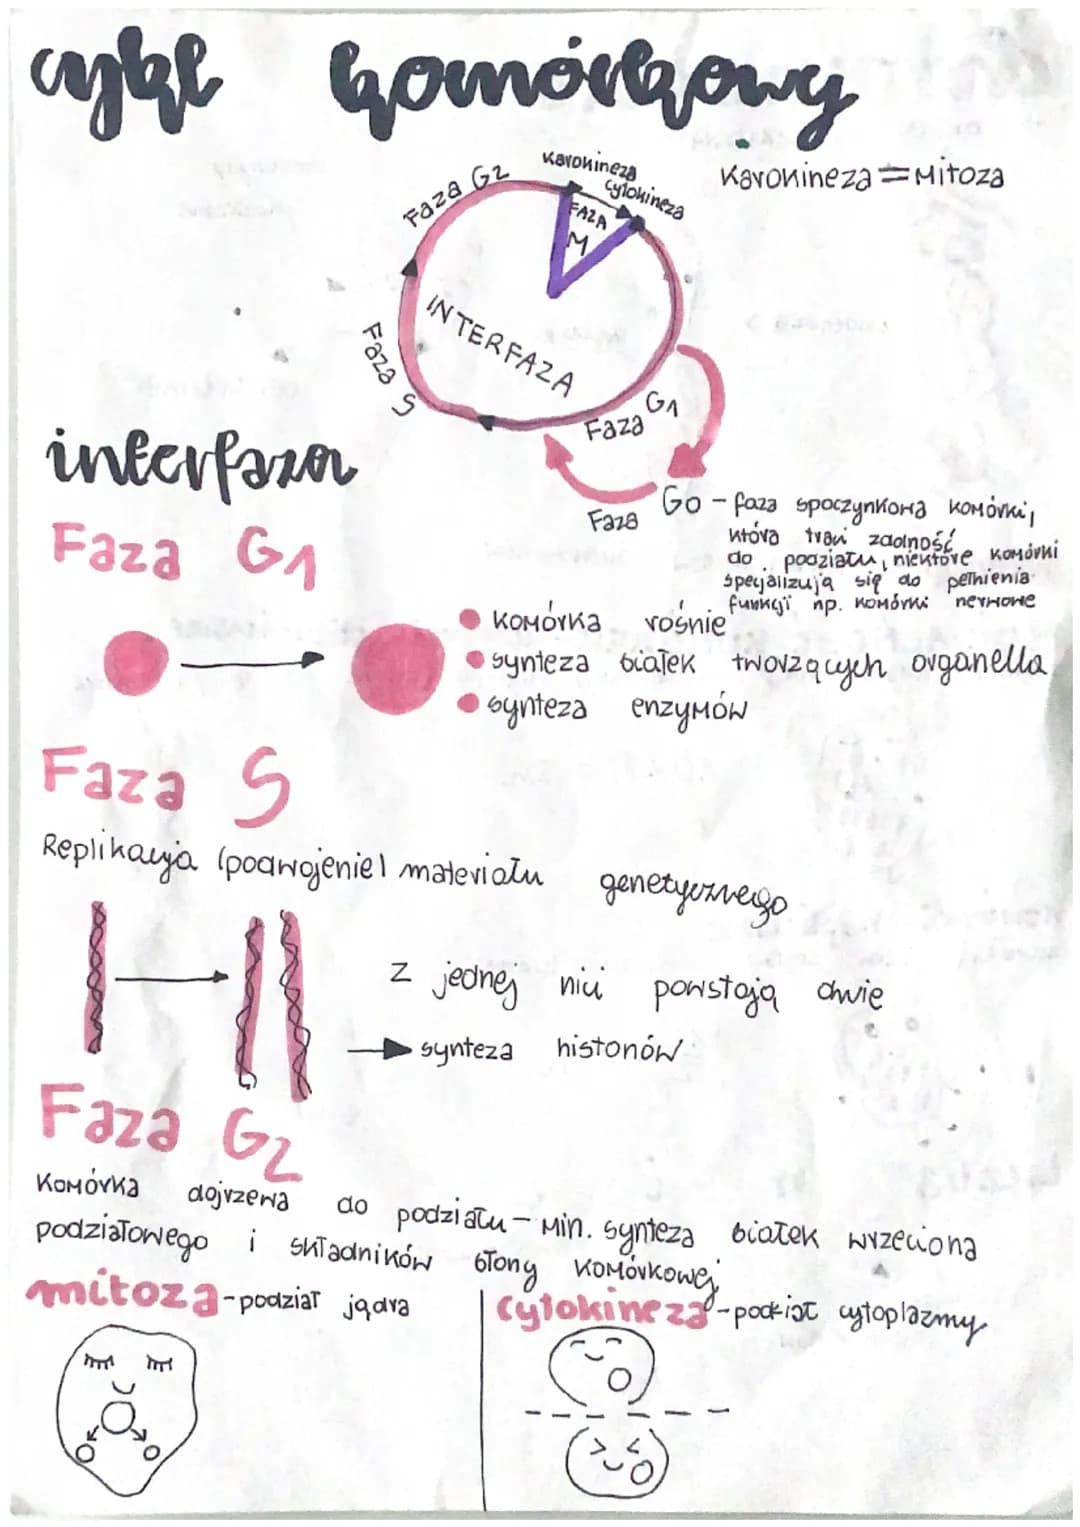 cykl komórkowy
Karokineza = Mitoza
Karokineza
Cytokineza
Faza G2
FAZA
M
INTERFAZA
Faza S
Faza G1
interfaza
Faza G0 - faza spoczynkowa komórki,
która traci zdolność
do podziału, niektóre komórki
specjalizują się do pełnienia
funkcji np. komórki nerwowe
Faza G1
komórka rośnie
synteza białek tworzących organella
synteza enzymów
Faza S
Replikacja (podwojenie) materiału genetycznego
z jednej nici powstają dwie
synteza histonów
Faza G2
Komórka dojrzewa do podziału - min. synteza białek wrzeciona
podziałowego i składników błony komórkowej
mitoza - podział jądra
Cytokineza - podział cytoplazmy